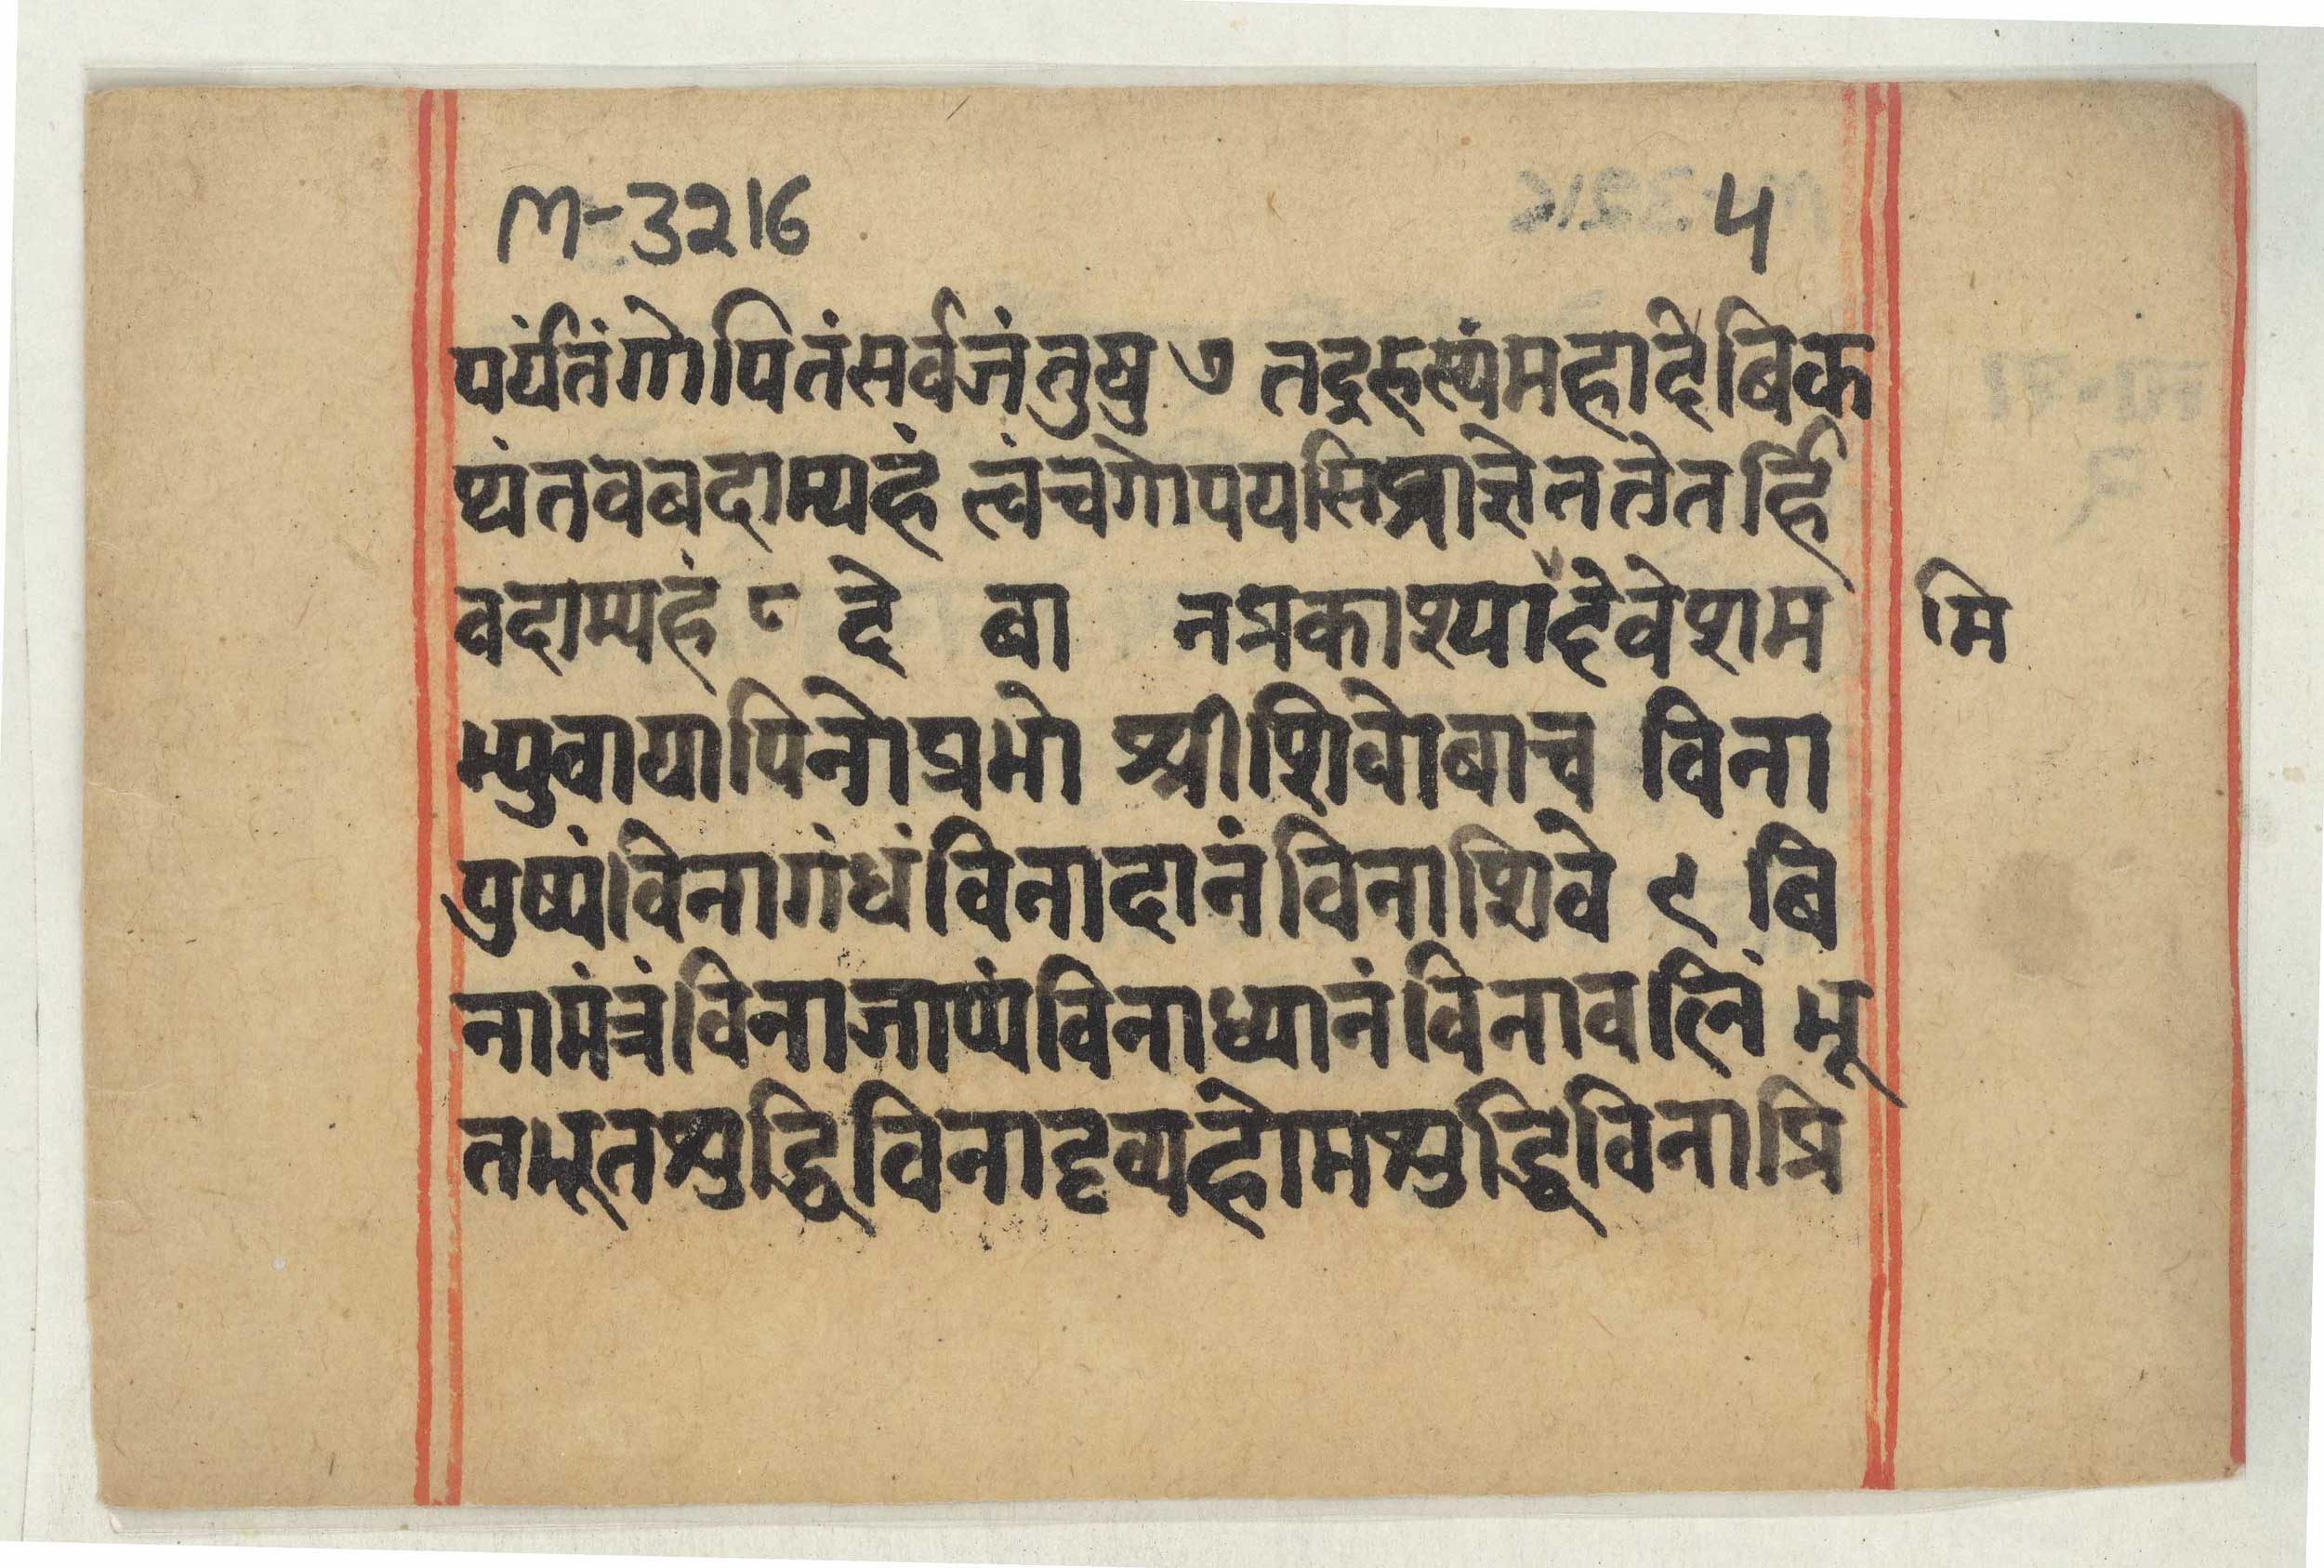 M-3216 ५
पर्यंतंगोपितंसर्वजंतुषु ७ तद्रहस्यंमहादेबिक
थ्यंतवबदाम्यहं त्वंचगोपयसिप्राज्ञेनततेतर्हि
वदाम्यहं ८ दे बा नप्रकाश्यांदेवेशम मि
भ्युवायापिनोप्रभो श्रीशिवोबाच विना
पुष्पंविनागंधंविनादानंविनाशिवे ९ बि
नामंत्रंविनाजाप्यंविनाध्यानंविनावलिं भू
तभूतशुद्धिविनाद्रव्यहोमशुद्धिविनाप्रि